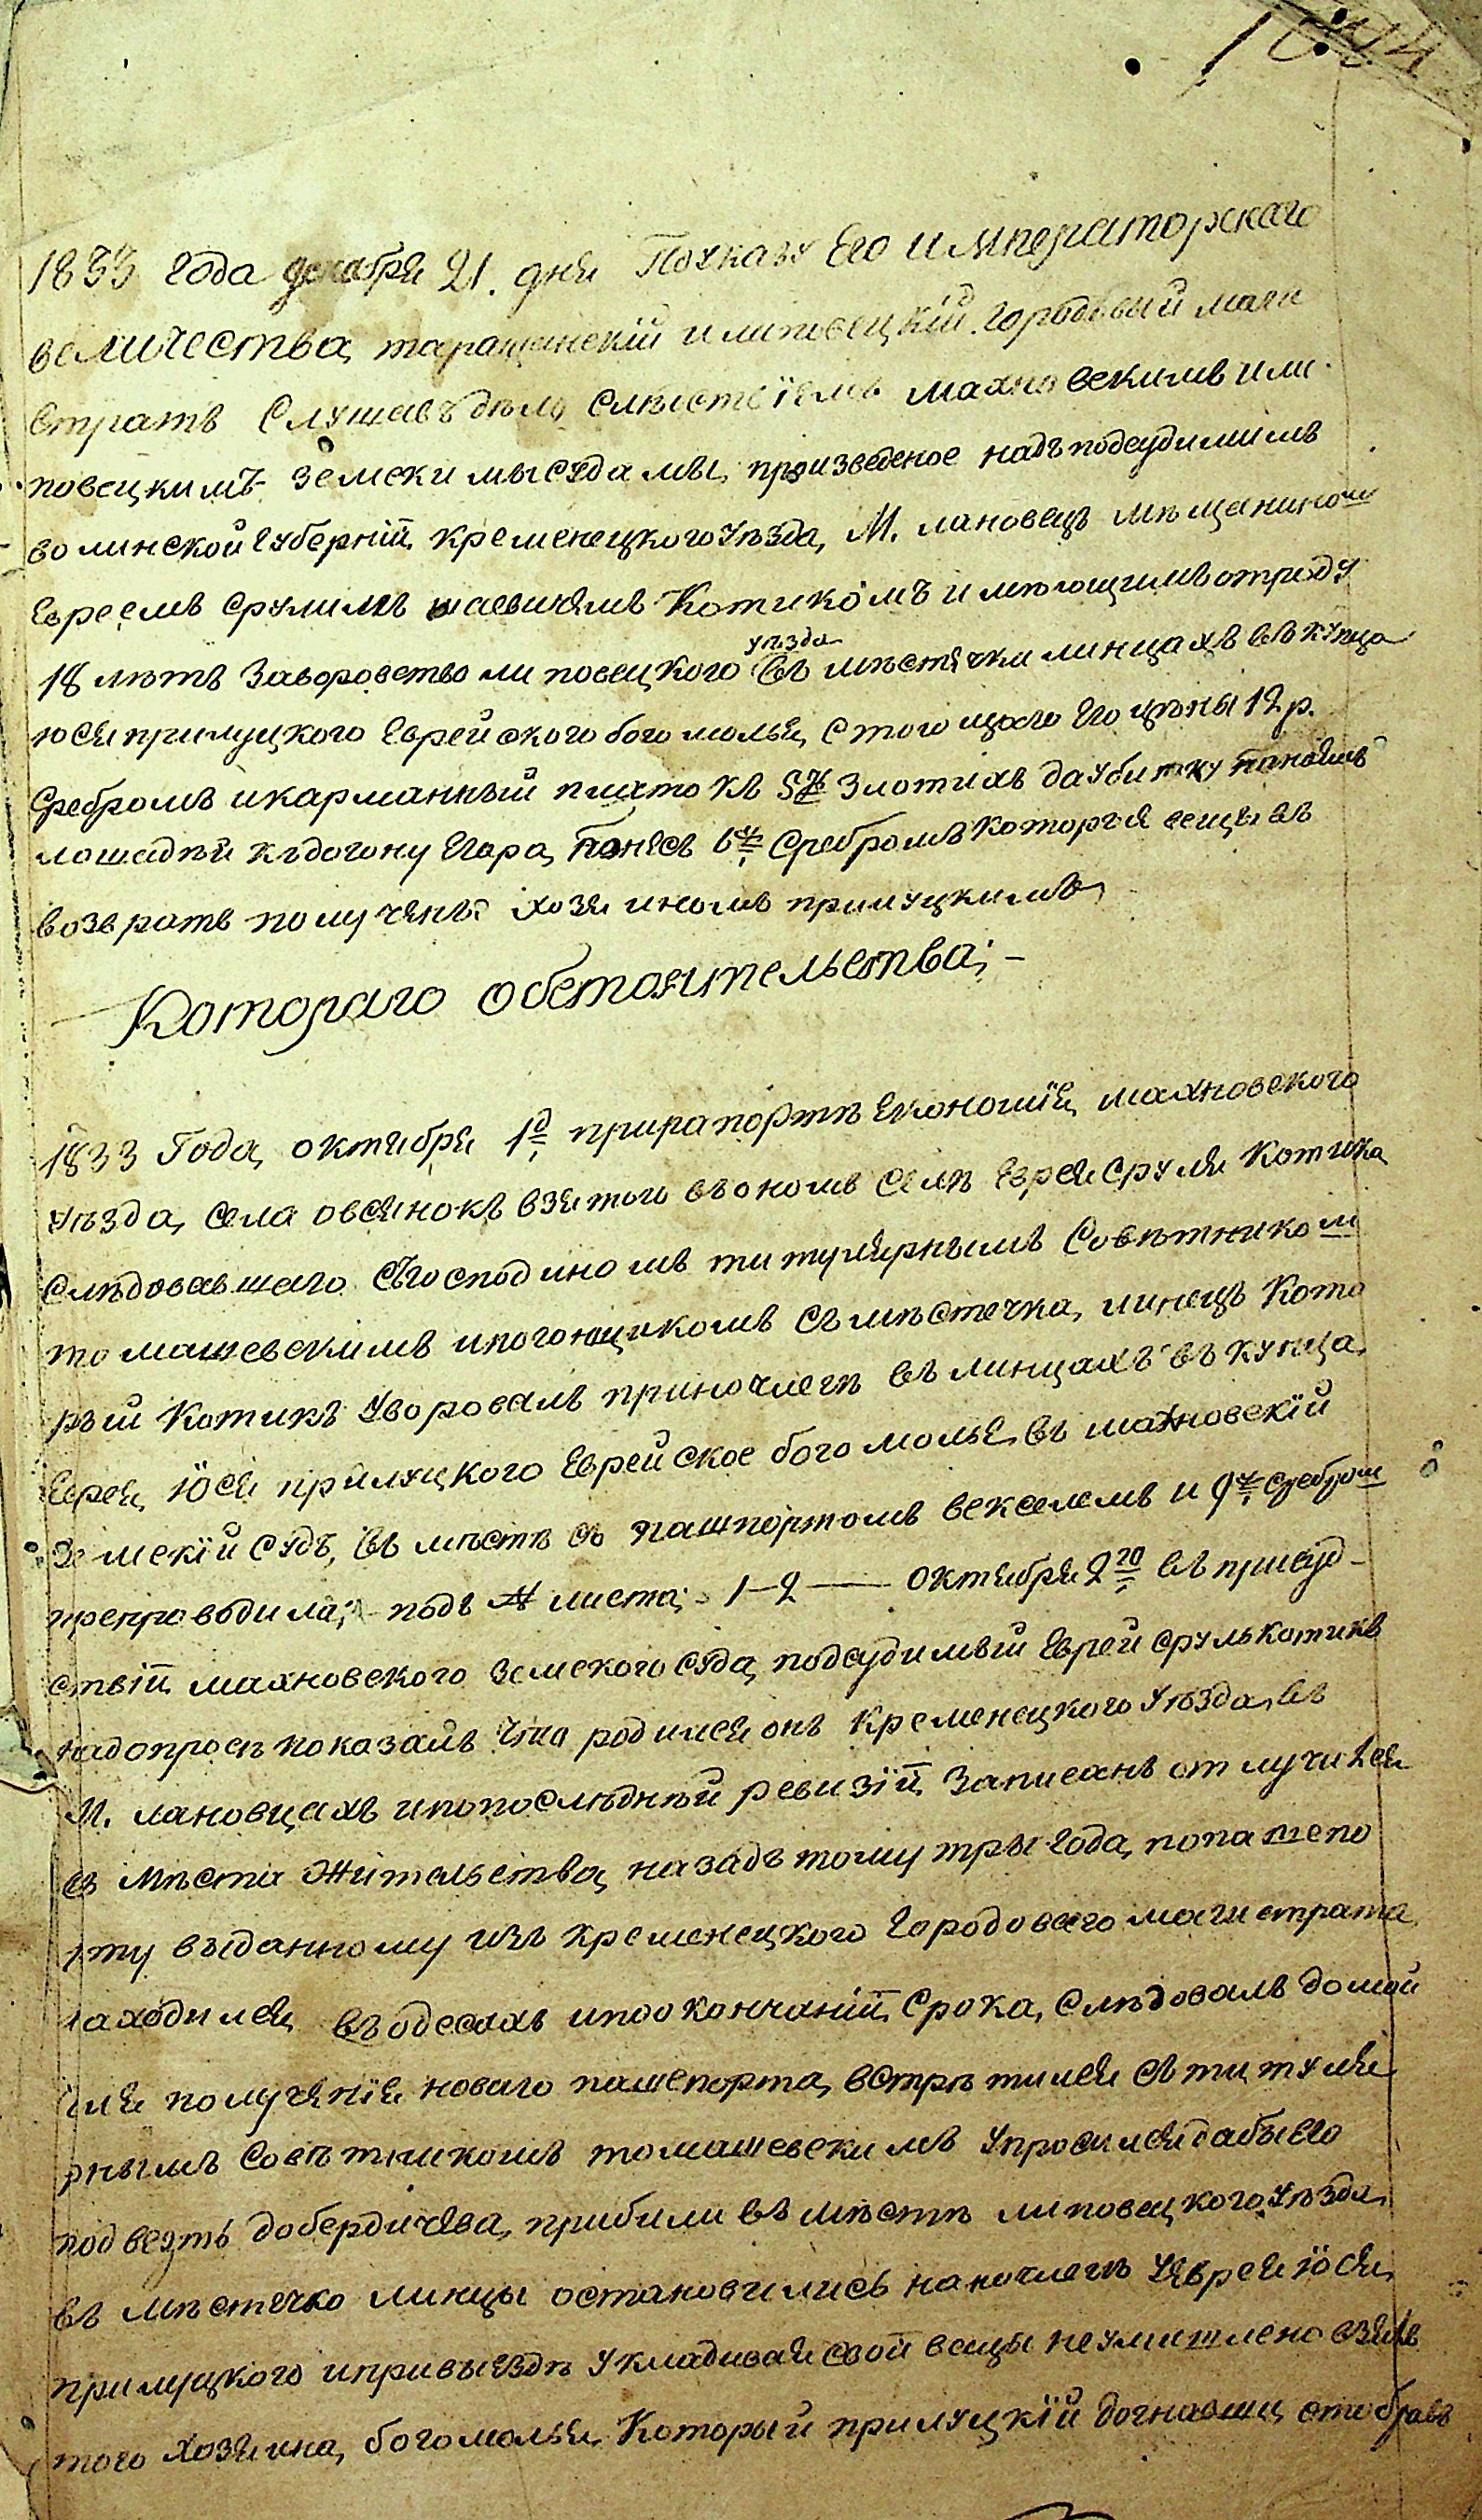 1833 года декабря 21. дня Поуказу Его императорскаго
величества, таращанскій и липовецкій городовый маги
стратъ Слушавъ дѣло слѣдствіемъ махновскимъ и ли
повецкимъ земскимы судамы, произведеное надъ подсудимимъ
волинской губерніи, кременецкого уѣзда, М. лановецъ мѣщаниномъ
Евреемъ срулимъ шаевичемъ Котикомъ имѣющимъ отроду
18 лѣтъ Заворовство липовецкого уѣзда въ мѣстечки линцахъ въ купца
юся прилуцкого Еврейского богомолья, стоющаго Его цѣны 12 р.
Сребромъ и карманный платокъ злотихъ да убитку
лошадѣй къ догону Егора, Сребромъ которыя вещы въ
возвратъ получены хозяиномъ прилуцкимъ,
Котораго обстоятельства; –
1833 Года, октября 1д прирапортѣ Економіе, махновского
уѣзда, села овсянокъ взятого въ ономъ селѣ Еврея Сруля Котика
слѣдовавшаго съ господиномъ титулярнымъ Совѣтником
томашевскимъ и погонщикомъ съ мѣстечка, линецъ Кото
рый Котикъ уворовалъ приночлегѣ въ линцахъ въ купца
Еврея, Юся прилуцкого Еврейское богомолье, въ махновскій
Земскій судъ, въ мѣстѣ съ пашпортомъ векселемъ и 9 сребром
препроводила; подъ № листа; 1–2 — Октября 2го въ присуд-
ствіи махновского земского суда, подсудимый Еврей сруль котикъ
на допросѣ показалъ что родился онъ Кременецкого уѣзда, въ
М. лановцахъ и по послѣднѣй ревизіи записанъ отлучился
съ мѣста жительства, назадъ тому тры года, по пашепо
рту выданному изъ кременецкого городоваго магистрата
находился въ одесахъ и по окончаніи срока, слѣдовалъ домой
для полученіе новаго пашепорта, встрѣтился съ титуля
рнымъ совѣтникомъ томашевскимъ упросился дабы его
подвезть до бердичева, прибили въ мѣстѣ липовецкого уѣзда,
въ мѣстечко линцы остановились на ночлегъ уеврея Юся,
прилуцкого и при выездѣ укладивая свои вещы неумишлено взялъ
того хозяина, богомолья, Который прилуцкій догнавши отобралъ